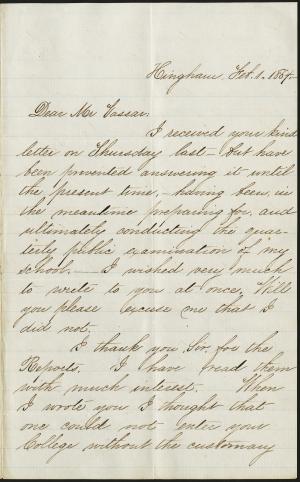 Hingham, Feb. 1. 1864.
Dear Mr Vassar:
I received your kind
letter on Thursday last – but have
been prevented answering it until
the present time, – having been, in
the meantime preparing for, and
ultimately conducting the quar-
terly public examination of my
school. – I wished very much
to write to you at once. Will
you please excuse me that I
did not.
I thank you, Sir, for the
Reports. I have read them
with much interest. When
I wrote you I thought that
one could not enter your
College without the customary